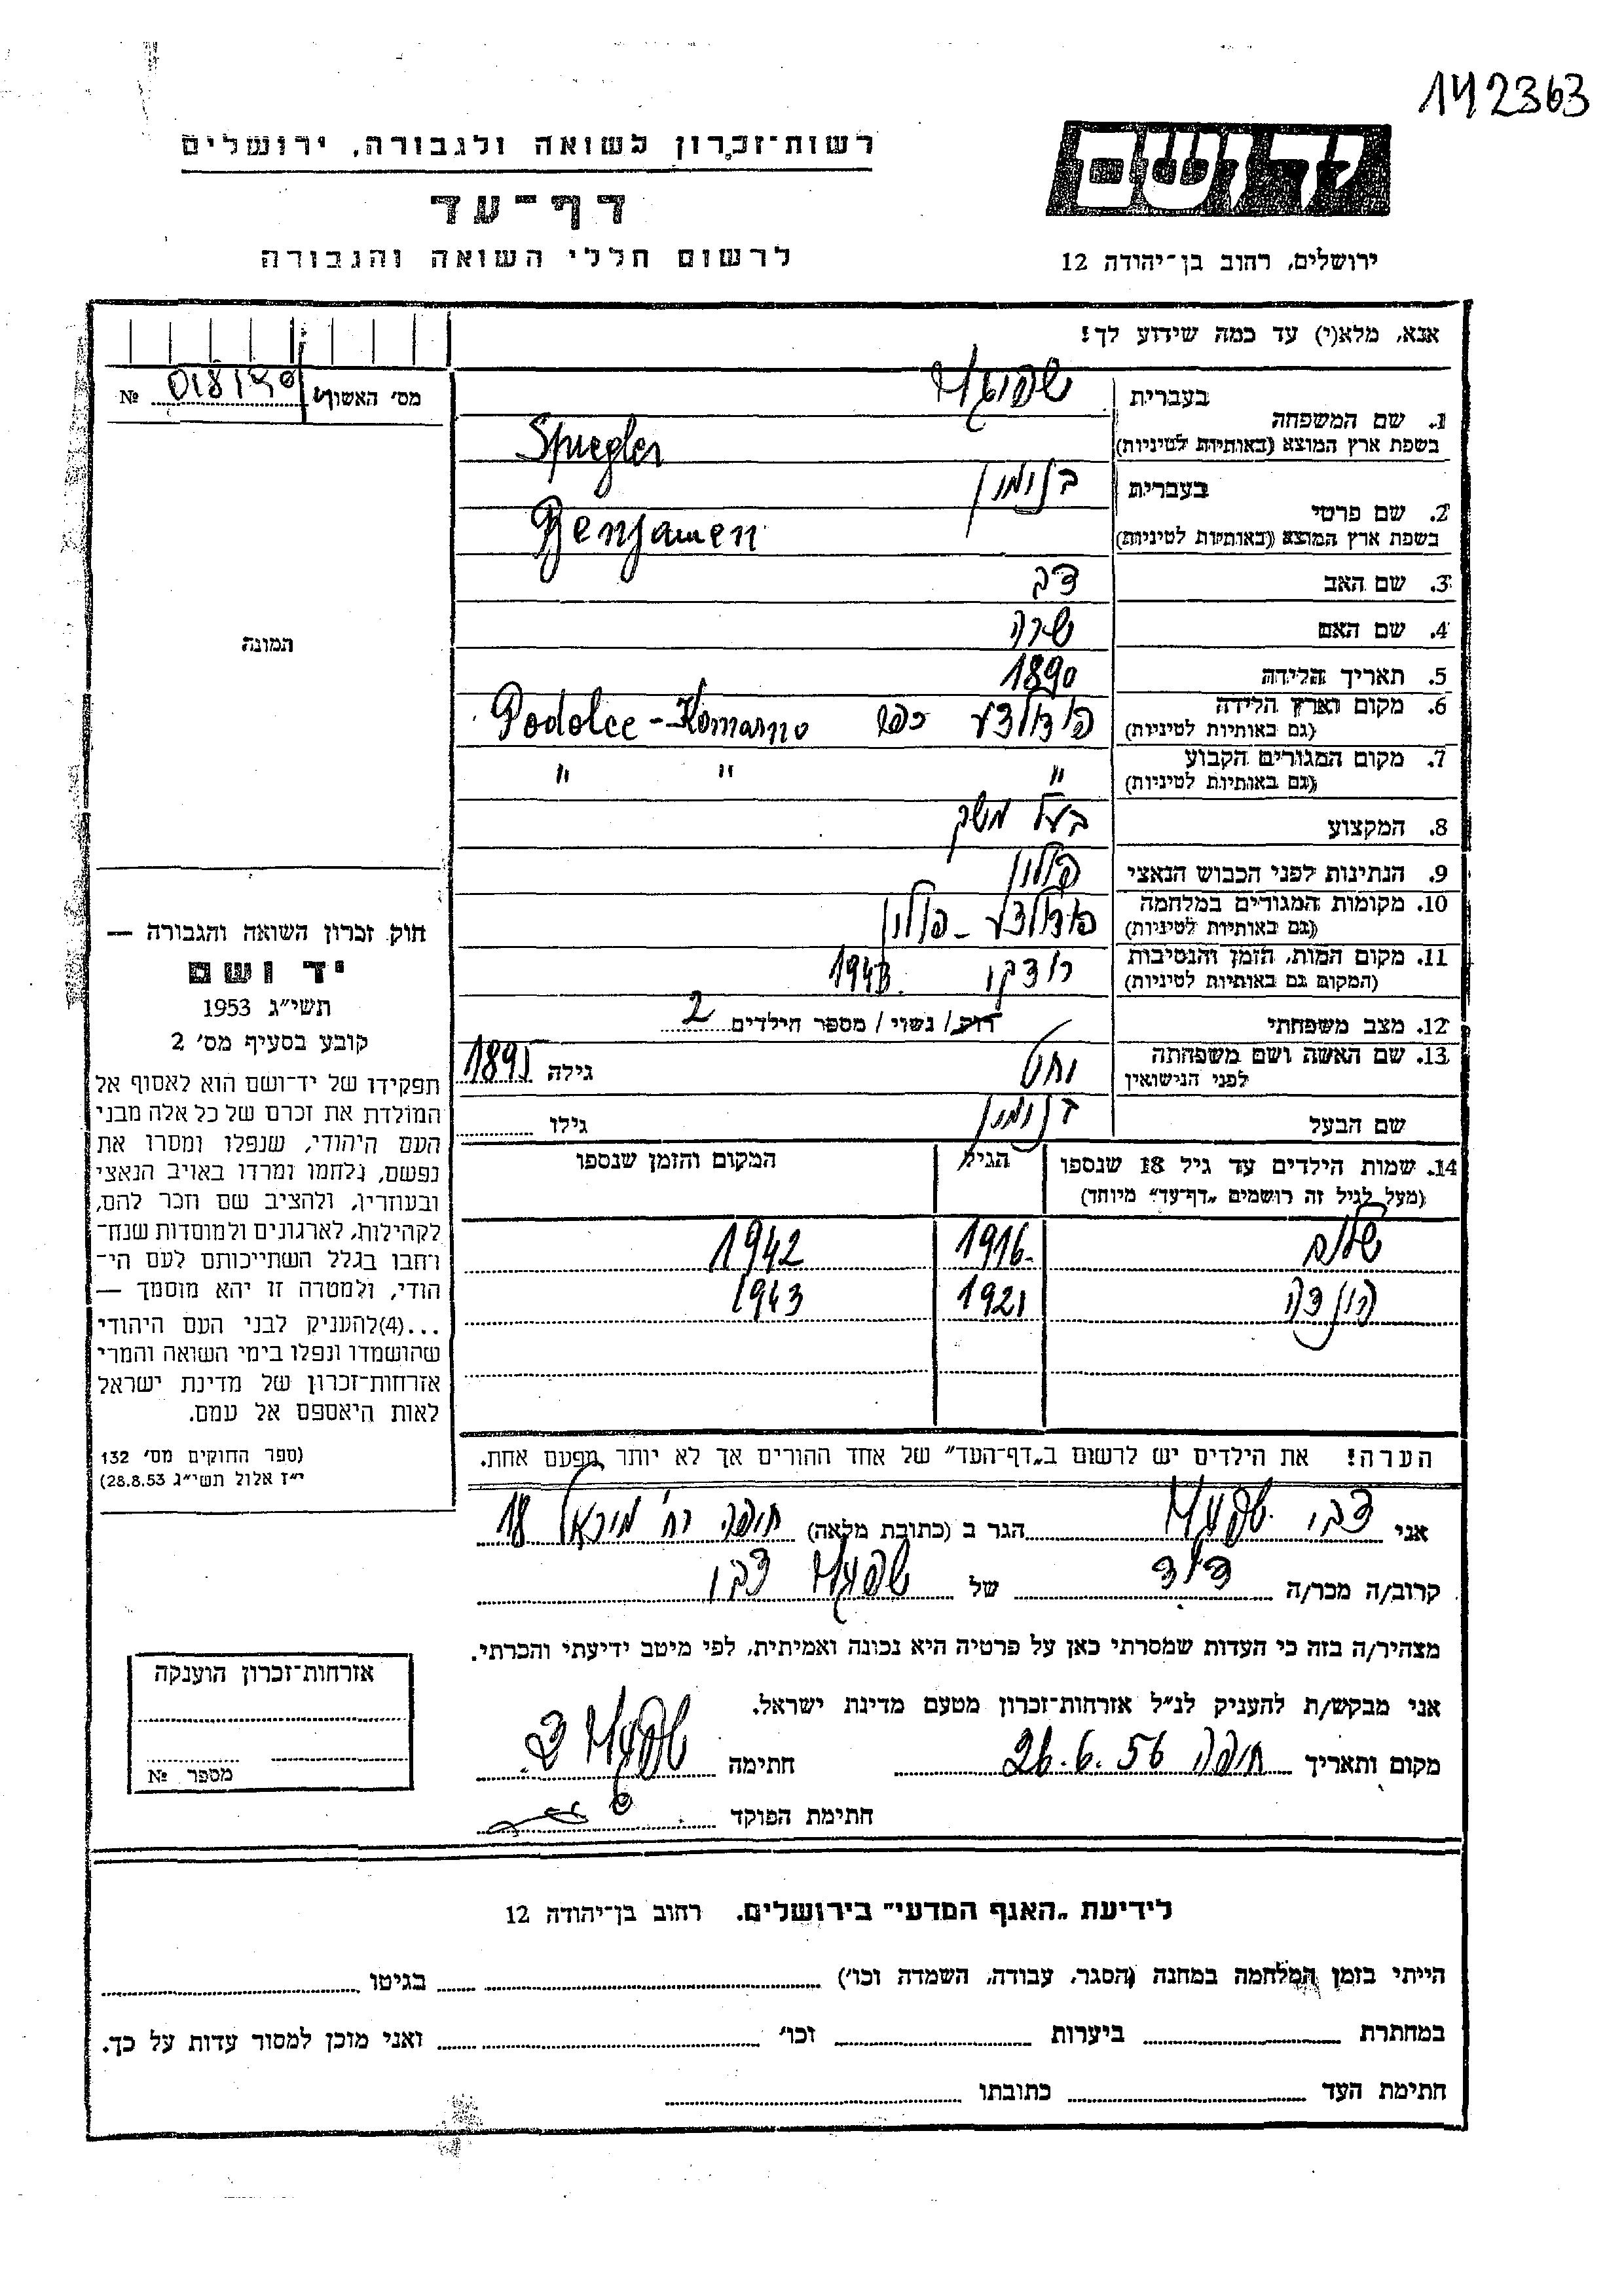 142363
יד ושם
רשות־זכרון לשואה ולגבורה, ירושלים
דף־עד
לרשום חללי השואה והגבורה
ירושלים, רחוב בן־יהודה 12
אנא, מלא(י) עד כמה שידוע לך!
מס' האשוף № 018140
1. שם המשפחה
בעברית
בשפת ארץ המוצא (באותיות לטיניות) Spiegler
2. שם פרטי
בעברית בנימין
בשפת ארץ המוצא (באותיות לטיניות) Benjamen
3. שם האב דב
4. שם האם שרה
5. תאריך הלידה 1890
6. מקום וארץ הלידה
(גם באותיות לטיניות) כפר Podolce - Komarno
7. מקום המגורים הקבוע
(גם באותיות לטיניות) " " "
8. המקצוע בעל משק
9. הנתינות לפני הכבוש הנאצי פולין
10. מקומות המגורים במלחמה
(גם באותיות לטיניות) פודולצע - פולין
11. מקום המות, הזמן והנסיבות
(המקום גם באותיות לטיניות) רודקי 1943
12. מצב משפחתי רוק / נשוי / מספר הילדים 2
13. שם האשה ושם משפחתה
לפני הנישואין גילה
שם הבעל בנימין גילו
14. שמות הילדים עד גיל 18 שנספו
(מעל לגיל זה רושמים „דף־עד" מיוחד) הגיל המקום והזמן שנספו
1916 1942
1921 1943
הערה! את הילדים יש לרשום ב„דף־העד" של אחד ההורים אך לא יותר מפעם אחת.
תמונה
חוק זכרון השואה והגבורה —
יד ושם
תשי"ג 1953
קובע בסעיף מס' 2
תפקידו של יד־ושם הוא לאסוף אל
המולדת את זכרם של כל אלה מבני
העם היהודי, שנפלו ומסרו את
נפשם, נלחמו ומרדו באויב הנאצי
ובעוזריו, ולהציב שם וזכר להם,
לקהילות, לארגונים ולמוסדות שנח־
רחבו בגלל השתייכותם לעם הי־
הודי, ולמטרה זו יהא מוסמך —
...(4)להעניק לבני העם היהודי
שהושמדו ונפלו בימי השואה והמרי
אזרחות־זכרון של מדינת ישראל
לאות היאספם אל עמם.
(ספר החוקים מס' 132
י"ז אלול תשי"ג 28.8.53)
אני הגר ב (כתובת מלאה) חיפה רח' 18
קרוב/ה מכר/ה דוד של
מצהיר/ה בזה כי העדות שמסרתי כאן על פרטיה היא נכונה ואמיתית, לפי מיטב ידיעתי והכרתי.
אני מבקש/ת להעניק לנ"ל אזרחות־זכרון מטעם מדינת ישראל.
מקום ותאריך חיפה 26.6.56 חתימה
חתימת הפוקד
אזרחות־זכרון הוענקה
מספר №
לידיעת „האגף המדעי" בירושלים. רחוב בן־יהודה 12
הייתי בזמן המלחמה במחנה (הסגר, עבודה, השמדה וכו') בגיטו
במחתרת ביערות וכו' ואני מוכן למסור עדות על כך.
חתימת העד כתובתו